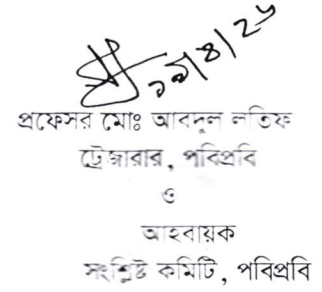 ১৯/৪/২৬
প্রফেসর মোঃ আবদুল লতিফ
ট্রেজারার, পবিপ্রবি
ও
আহবায়ক
সংশ্লিষ্ট কমিটি, পবিপ্রবি